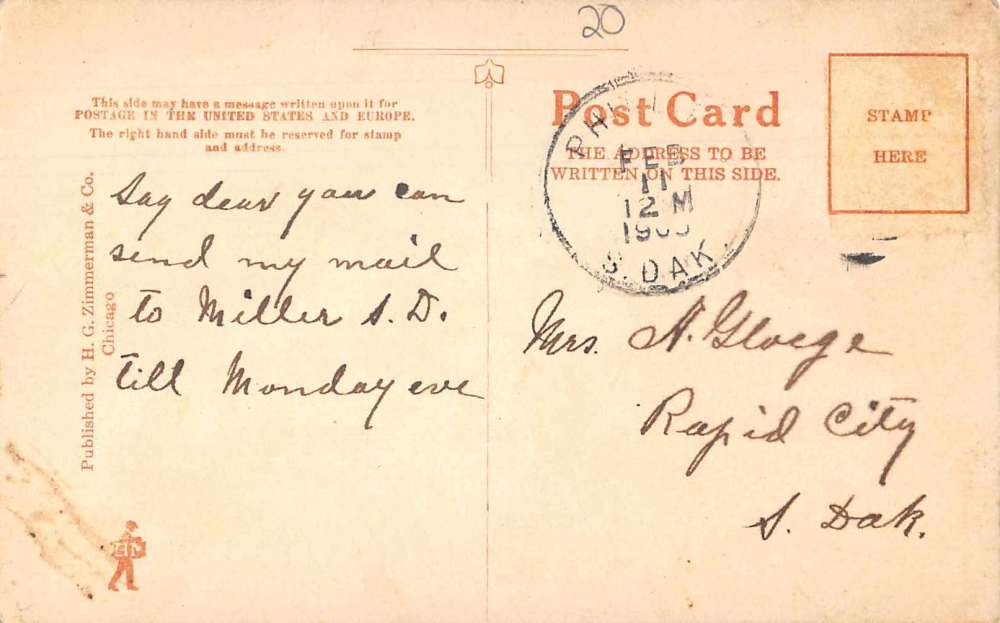 20
This side may have a message written upon it for
POSTAGE IN THE UNITED STATES AND EUROPE.
The right hand side must be reserved for stamp
and address.
Post Card
THE ADDRESS TO BE
WRITTEN ON THIS SIDE.
STAMP
HERE
FEB
11
12 M
S. DAK.
Say dear you can
send my mail
to Miller S.D.
till Monday eve
Mrs. A. Gloege
Rapid City
S. Dak.
Published by H. G. Zimmerman & Co.
Chicago